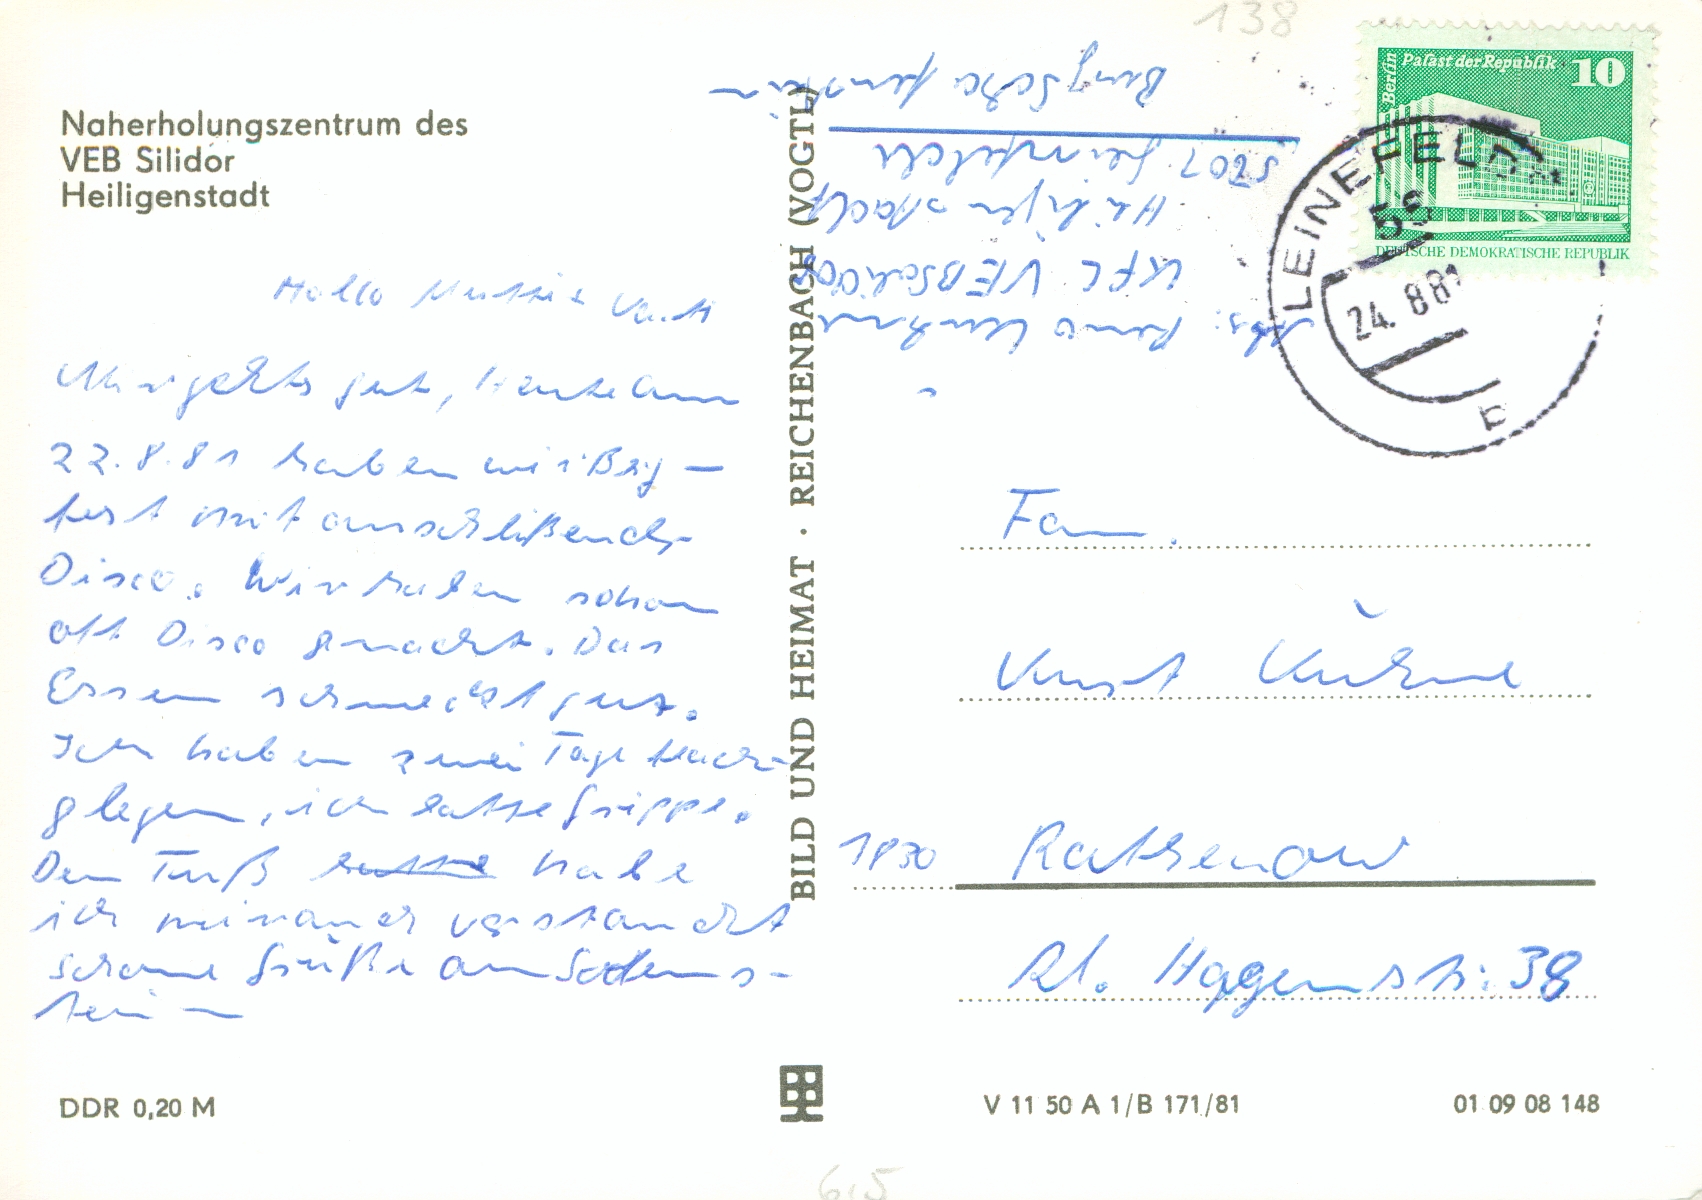 138
Naherholungszentrum des
VEB Silidor
Heiligenstadt
Hallo Mutti + Vati
Mir gehts gut, Heute am
22.8.81 haben wir Berg-
fest mit anschlißender
Disco. Wir haben schon
oft Disco gemacht. Das
Essen schmeckt gut.
Ich haben zwei Tage
glegen, ich hatte Grippe.
Den Fuß hatte habe
ich mir auch verstaucht
schöne Grüße am Bodens-
tein
DDR 0,20 M
BILD UND HEIMAT · REICHENBACH (VOGTL)
Abs:
VEB Silidor
Heiligenstadt
Burg Bodenstein
Berlin
Palast der Republik
10
DEUTSCHE DEMOKRATISCHE REPUBLIK
LEINEFELDE
24. 8 81
Fam.
Kurt Kühne
1830 Rathenow
Kl. Hagenstr. 38
V 11 50 A 1/B 171/81
01 09 08 148
6,5